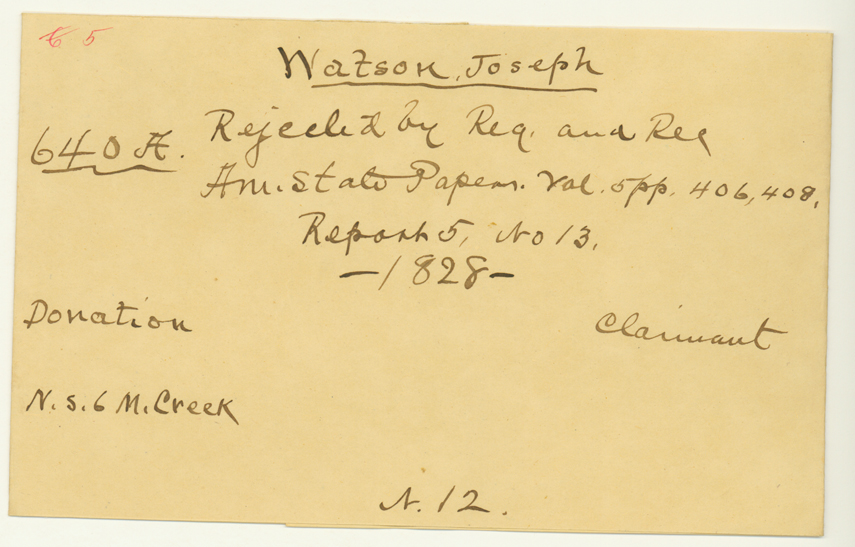 5
Watson, Joseph
640 A. Rejected by Reg. and Rec
Am. State Papers. Vol. 5 pp. 406, 408.
Report 5, No 13.
—1828—
Donation Claimant
N. S. 6 M. Creek
N. 12.